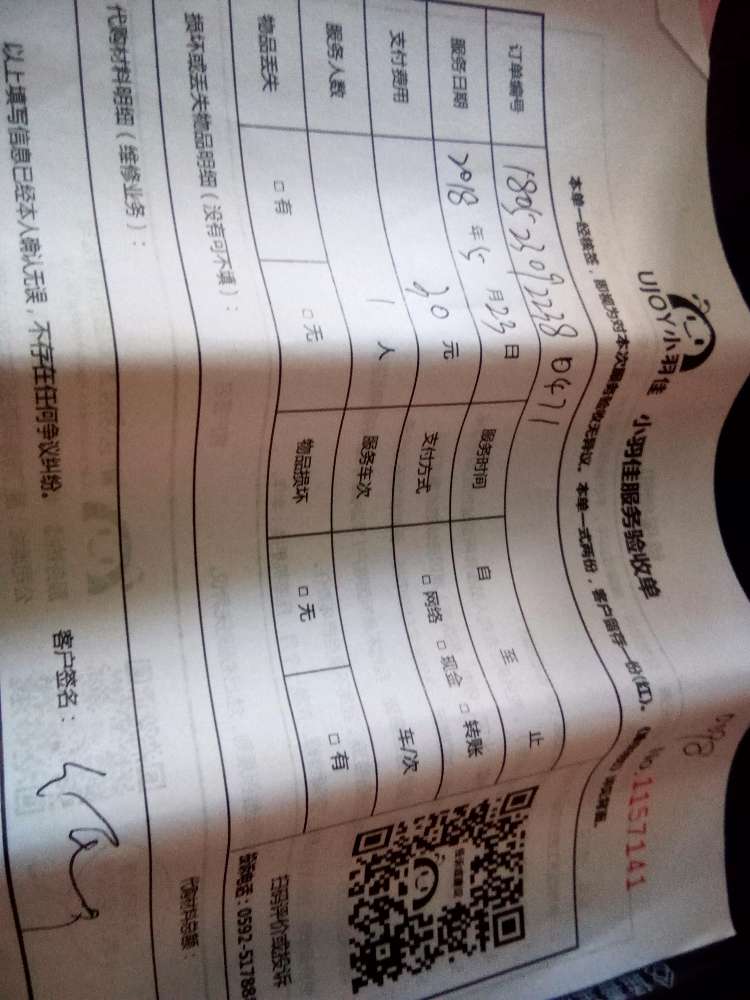 UJOY小羽佳 小羽佳服务验收单
No.1157141
本单一经签, 即视为对本次服务验收无异议。本单一式两份,客户留存一份(红)。
订单编号
服务日期 2018 年 5 月 23 日 服务时间 自 至 止
支付费用 30 元 支付方式 □ 网络 □ 现金 □ 转账
服务人数 1 人 服务车次 车/次
物品丢失 □ 有 □ 无 物品损坏 □ 无 □ 有
损坏或丢失物品明细(没有可不填):
代购材料明细(维修业务): 代购材料总额:
以上填写信息已经本人确认无误,不存在任何争议纠纷。 客户签名:
扫码评价或投诉
0592-51788